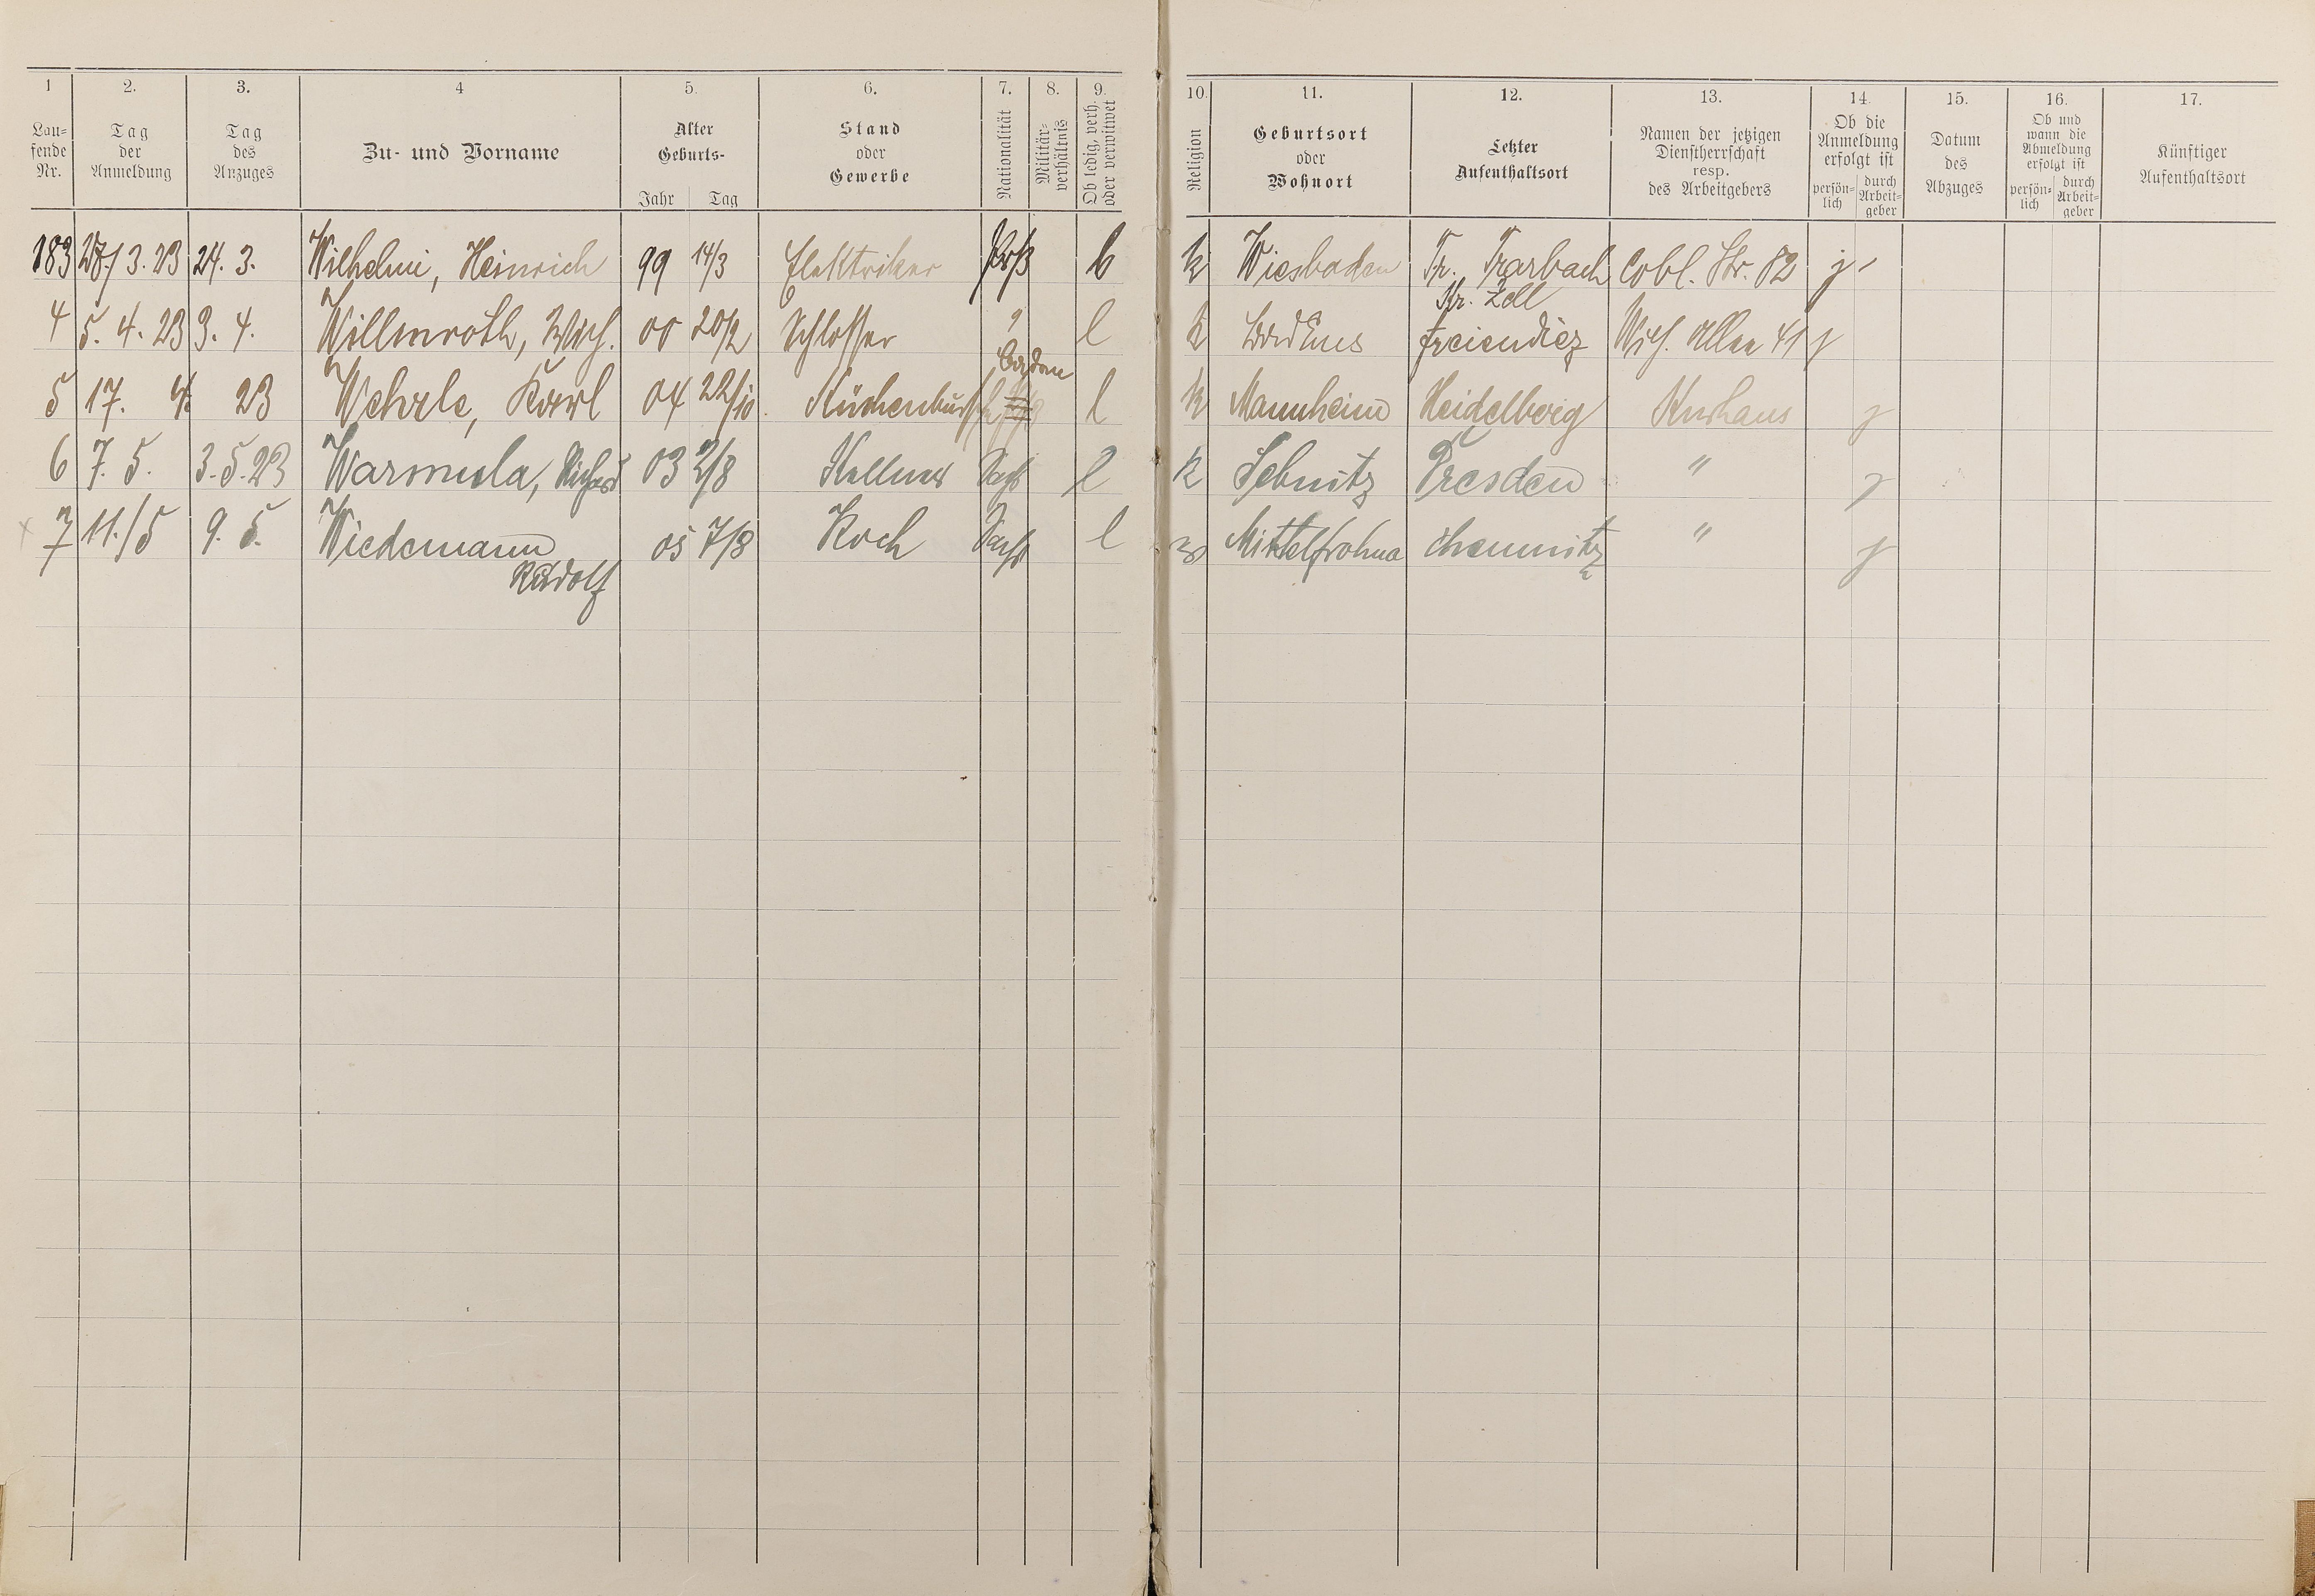 1 2. 3. 4 5. 6. 7. 8. 9. 10. 11. 12. 13. 14. 15. 16. 17.
Lau-
fende
Nr.
Tag
der
Anmeldung
Tag
des
Anzuges
Zu- und Vorname
Alter
Geburts-
Jahr Tag
Stand
oder
Gewerbe
Nationalität
Militär-
verhältnis
Ob ledig, verh.
oder verwitwet
Religion
Geburtsort
oder
Wohnort
Letzter
Aufenthaltsort
Namen der jetzigen
Dienstherrschaft
resp.
des Arbeitgebers
Ob die
Anmeldung
erfolgt ist
persön-
lich
durch
Arbeit-
geber
Datum
des
Abzuges
Ob und
wann die
Abmeldung
erfolgt ist
persön-
lich
durch
Arbeit-
geber
Künftiger
Aufenthaltsort
183 3. 23 24. 3. Wilhelmi, Heinrich 99 14/3 Elektriker k Wiesbaden Tr. Trarbach Cobl. Str. 82 j
Kr. Zell
4 5. 4. 23 3. 4. Willmroth, Wilh. 00 20/2 Schlosser " l k Bad Ems Freiendiez Wilh. Allee 41 j
Baden
5 17. 4. 23 Wehrle, Karl 04 22/10. Küchenbursche l k Mannheim Heidelberg Kurhaus j
6 7. 5. 3. 5. 23 Warmula, Richard 03 2/8 Kellner Sachs l k Sebnitz Dresden " j
7 11./5 9. 5. Wiedemann 05 7/8 Koch Sachs l Mittelfrohna Chemnitz " j
Rudolf